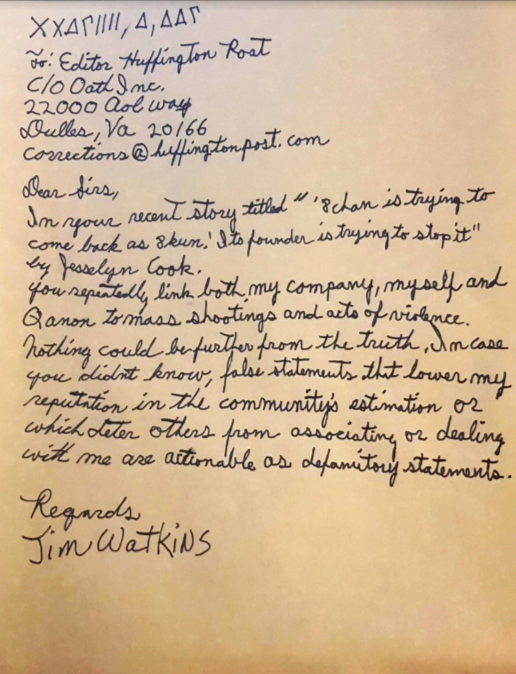 ΧΧΔΓΙΙΙΙ, Δ, ΔΔΓ
To: Editor Huffington Post
C/O Oath Inc.
22000 Aol way
Dulles, Va 20166
corrections@huffingtonpost.com
Dear Sirs,
In your recent story titled " '8chan is trying to
come back as 8kun.' Its founder is trying to stop it"
by Jesselyn Cook.
you repeatedly link both my company, myself and
Qanon to mass shootings and acts of violence.
Nothing could be further from the truth. In case
you didnt know, false statements that lower my
reputation in the community's estimation or
which deter others from associating or dealing
with me are actionable as defamitory statements.
Regards
Jim Watkins